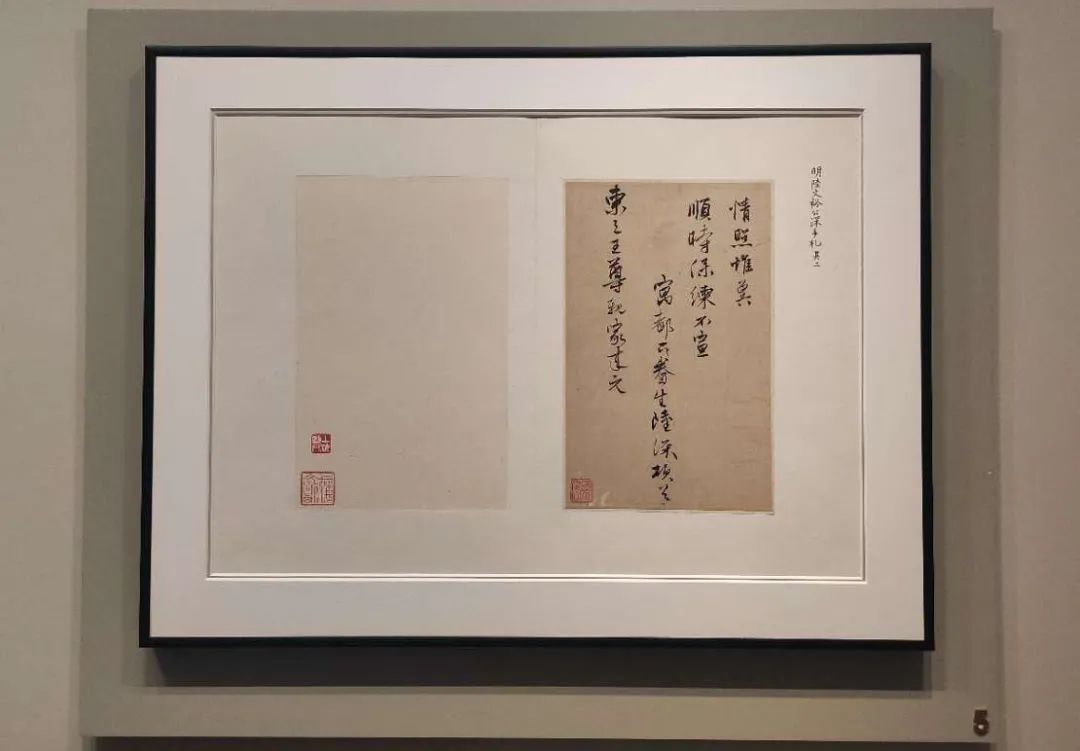 明陸文裕公深手札 其二
情照惟冀
順時保練不宣
寓都下眷生陸深頓首
東之王尊親家
5